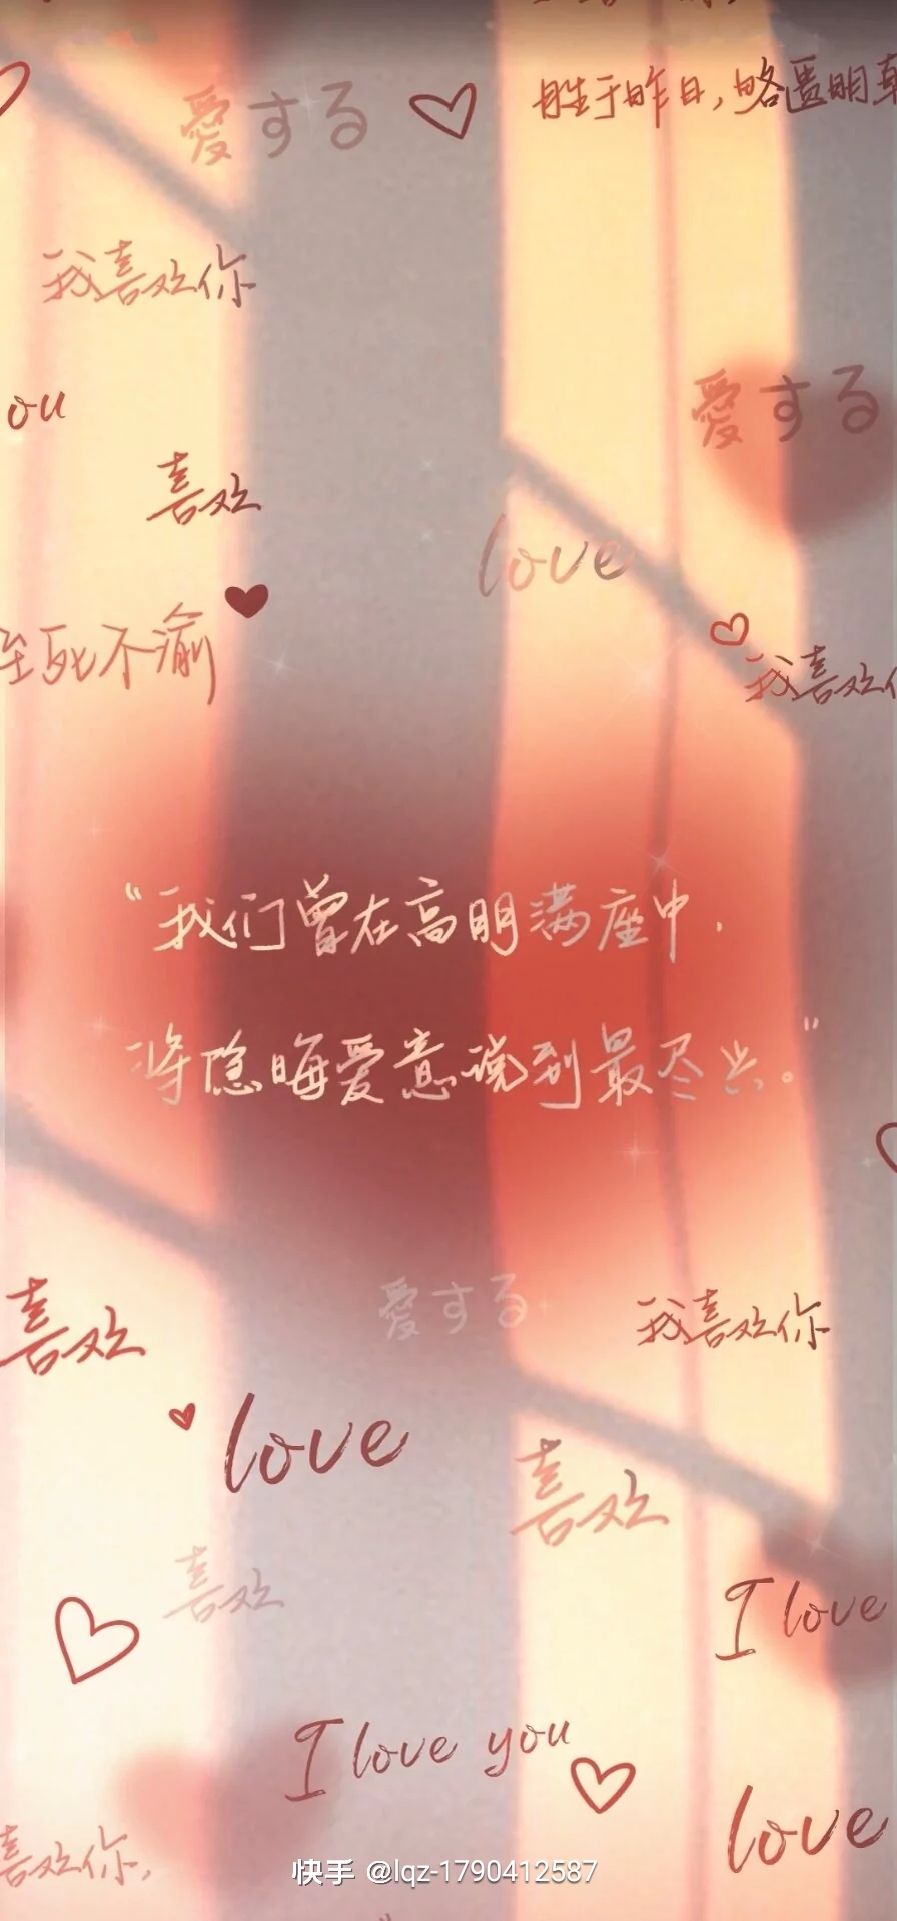 愛する
胜于昨日，略匮明朝
我喜欢你
ou
愛する
喜欢
love
至死不渝
我喜欢
“我们曾在高朋满座中，
将隐晦爱意说到最尽兴。”
愛する
喜欢
我喜欢你
love
喜欢
喜欢
I love
I love you
love
喜欢你，
快手 @lqz-1790412587